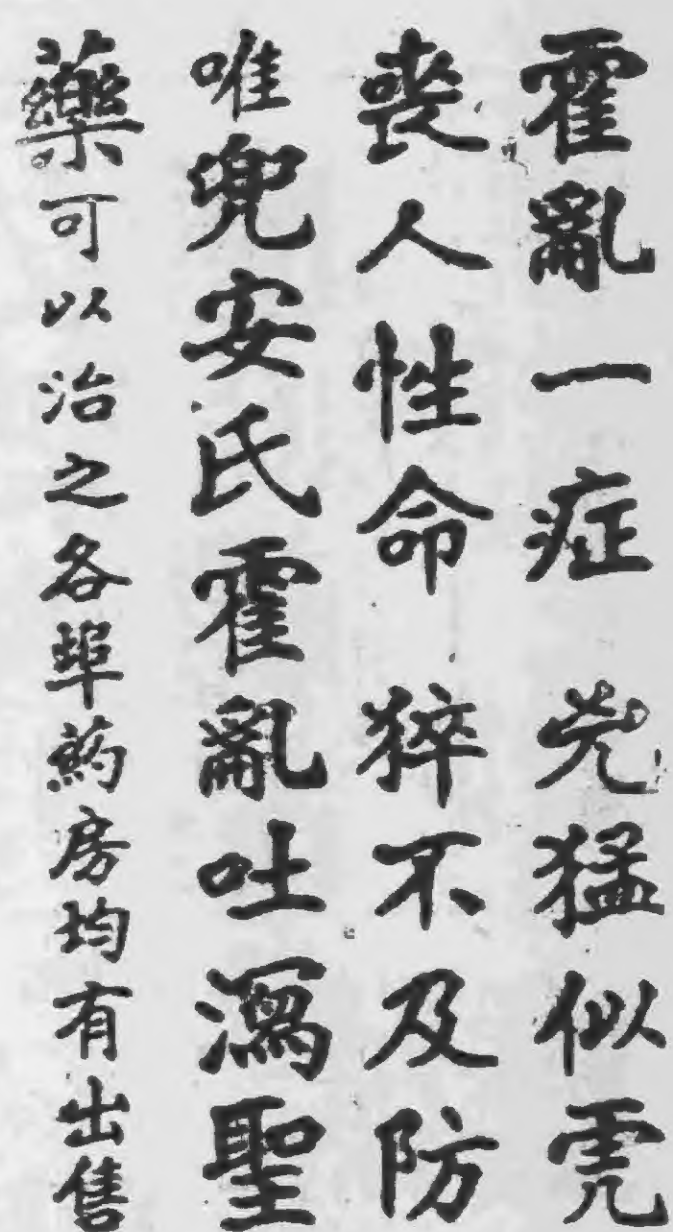 霍亂一症 兇猛似虎
喪人性命 猝不及防
唯兜安氏霍亂吐瀉聖
藥可以治之各埠藥房均有出售